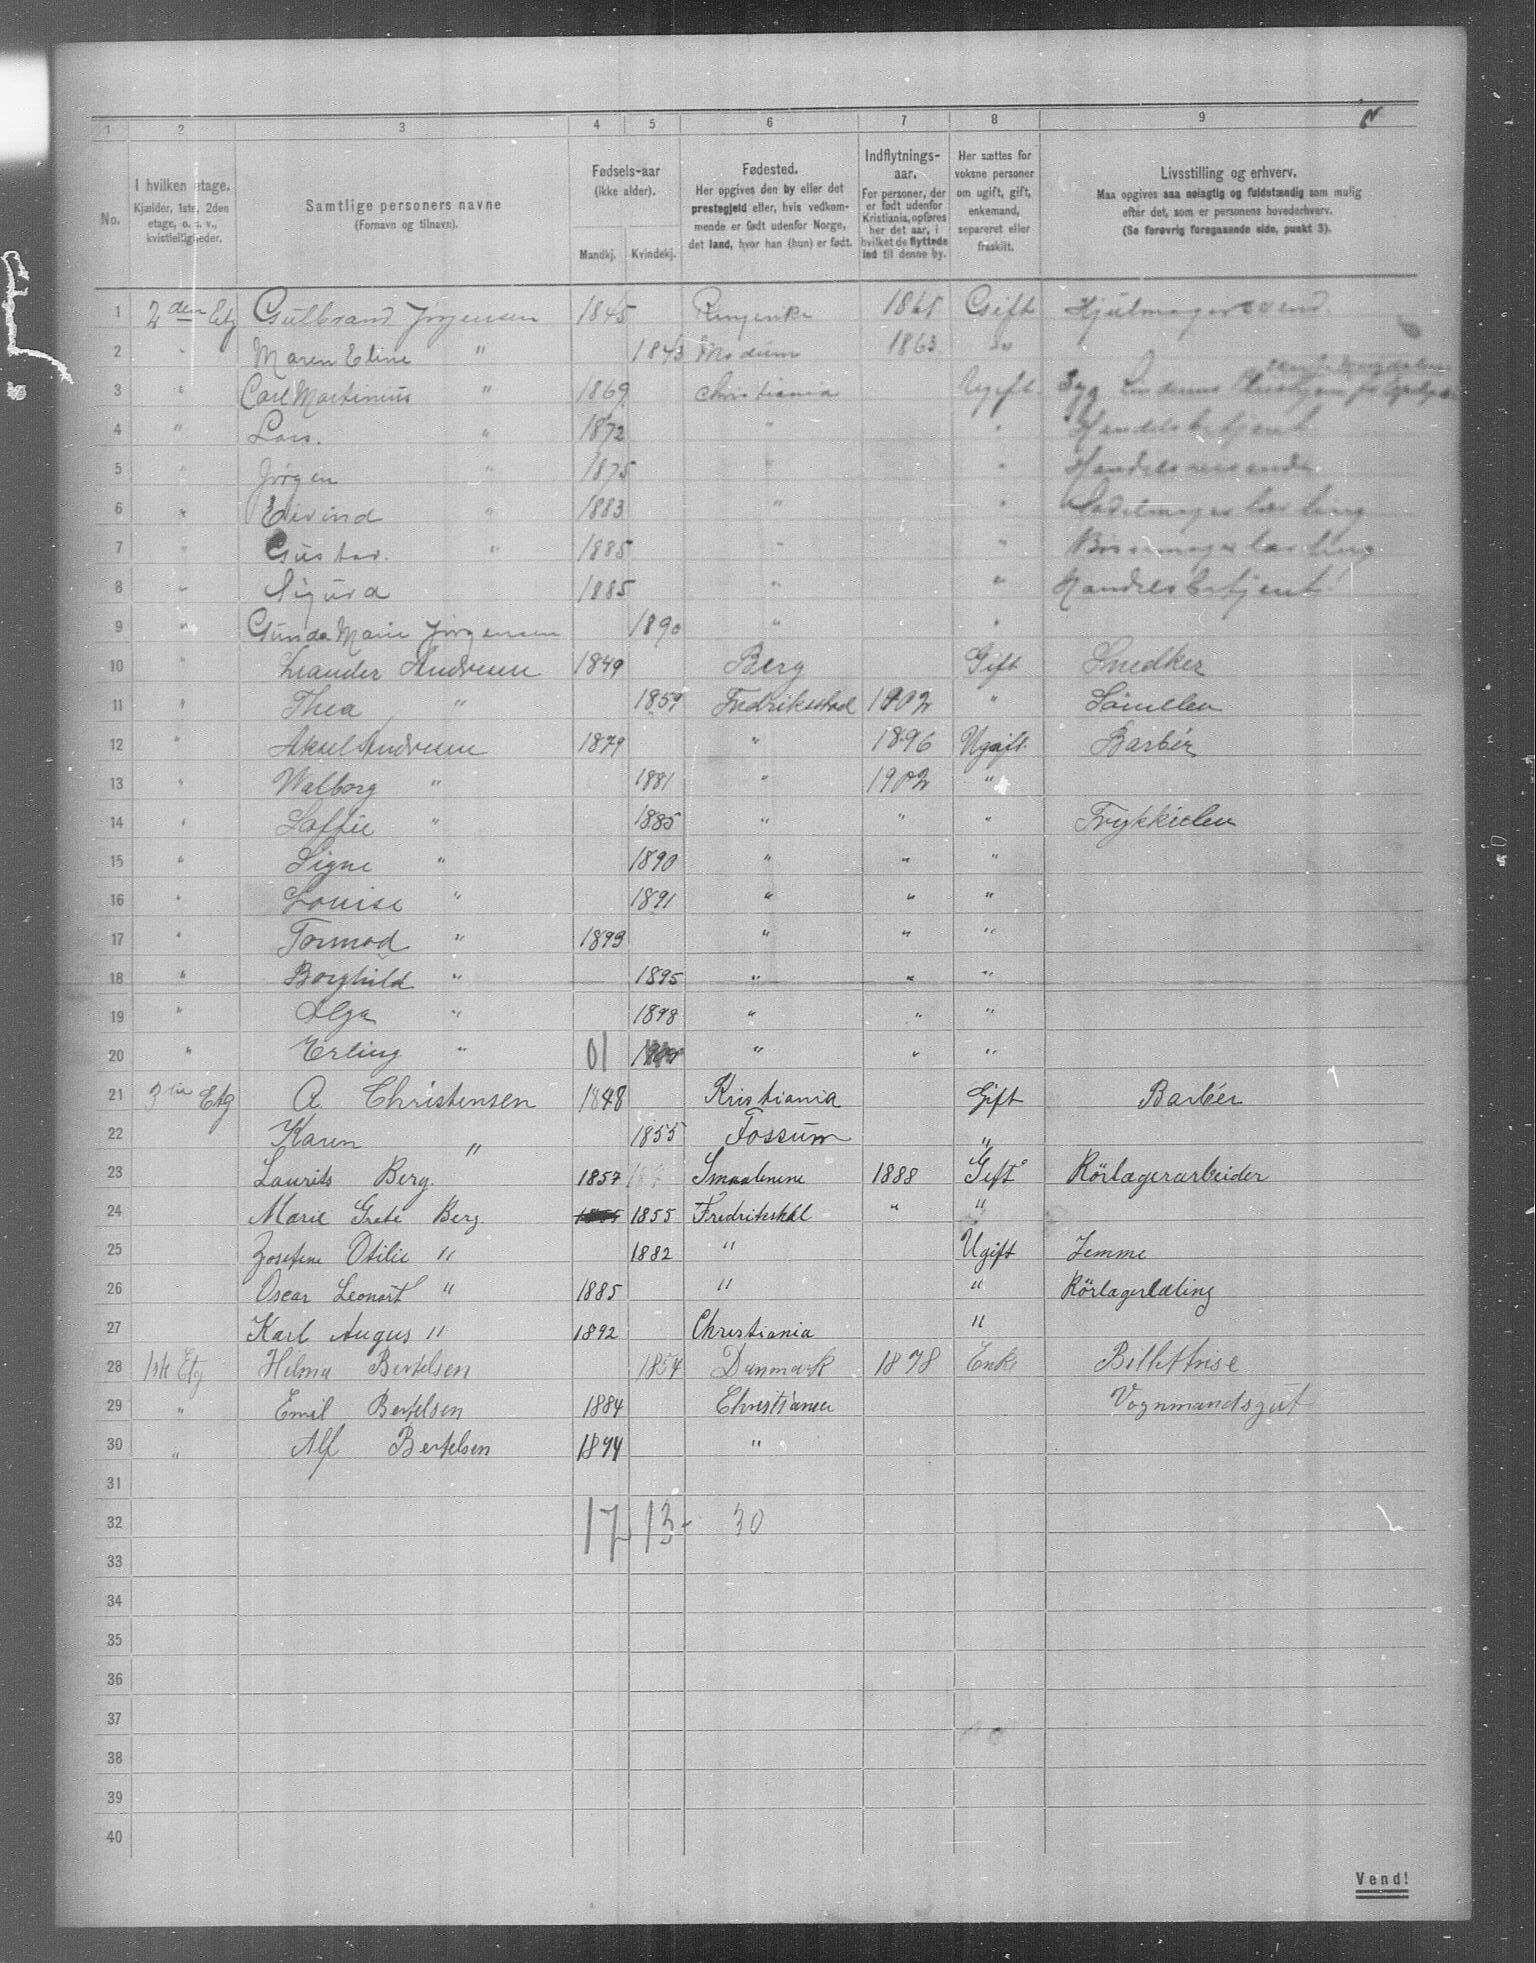 1 2 3 4 5 6 7 8 9
No.
I hvilken etage. Kjælder, 1ste, 2den etage, o. s. v., kvistleiligheder.
Samtlige personers navne (Fornavn og tilnavn).
Fødsels-aar (ikke alder). Mandkj. Kvindekj.
Fødested. Her opgives den by eller det prestegjeld eller, hvis vedkommende er født udenfor Norge, det land, hvor han (hun) er født.
Indflytnings-aar. For personer, der er født udenfor Kristiania, opføres her det aar, i hvilket de flyttede ind til denne by.
Her sættes for voksne personer om ugift, gift, enkemand, separeret eller fraskilt.
Livsstilling og erhverv. Maa opgives saa nøiagtig og fuldstændig som mulig efter det, som er personens hovederhverv. (Se forøvrig foregaaende side, punkt 3).
1 2den Etg Gulbrand Jørgensen 1845 Gift Hjulmagersvend
2 " Maren Eline " 1843 Modum 1863 "
3 " Carl Martinius " 1869 Christiania Ugift Syg
4 " Lars. " 1872 " " Handelsbetjent
5 " Jørgen " 1875 " " Handelsreisende
6 " Eivind " 1883 " " Sadelmagerlærling
7 " Gustav. " 1885 " "
8 " Sigurd 1885 " " Handelsbetjent
9 " Gunda Marie Jørgensen 1890 " "
10 " Leander Andresen 1849 Berg Gift Snedker
11 " Thea " 1859 Fredrikstad 1902 "
12 " Aksel Andresen 1879 " 1896 Ugift. Barbér
13 " Walborg " 1881 " 1902 "
14 " Soffie " 1885 " " " Trykkielev
15 " Signe " 1890 " " "
16 " Louise " 1891 " " "
17 " Tormod " 1893 " " "
18 " Borghild " 1895 " " "
19 " Olga " 1898 " " "
20 " Erling " 01 " " "
21 3die Etg A. Christensen 1848 Kristiania Gift Barbér
22 Karen " 1855 Fossum "
23 Laurits Berg. 1857 Smaalenene 1888 Gift Rörlægerarbeider
24 Marie Grete Berg 1855 Fredrikshl " "
25 Josefine Otilie " 1882 " Ugift Jemme
26 Oscar Leonart " 1885 " " Rörlægerlæling
27 Karl Augus " 1892 Christiania "
28 1ste Etg Helma Bertelsen 1854 Danmark 1878 Enke Billettrise
29 " Emil Bertelsen 1884 Christiania Vognmandsgut
30 " Alf Bertelsen 1894 "
31
32 17 13 - 30
33
34
35
36
37
38
39
40
Vend!